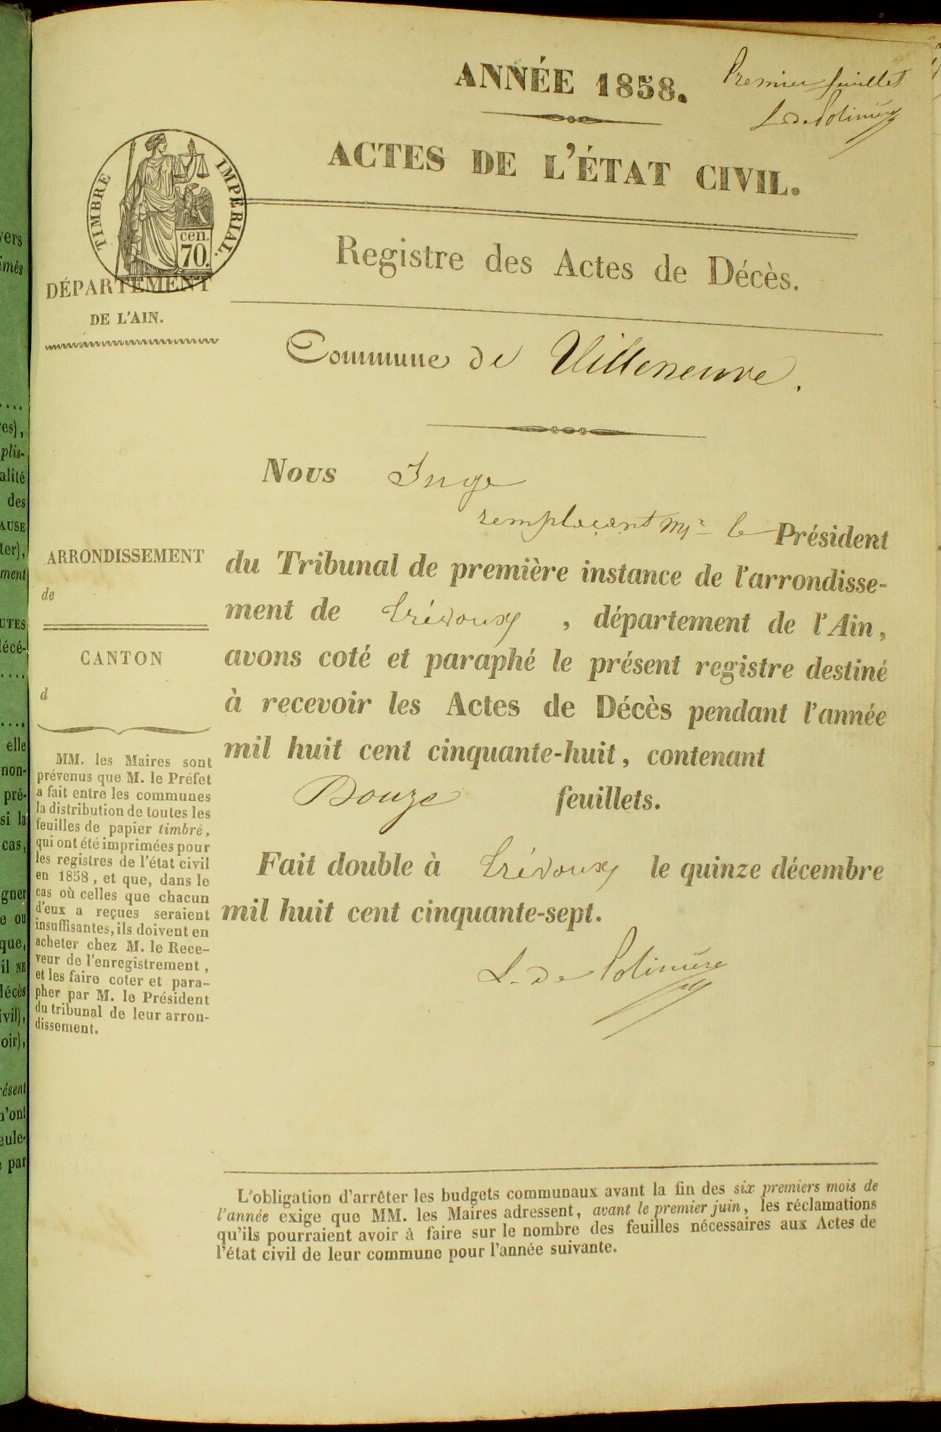 ANNÉE 1858.
Premier feuillet
L. de Polinière
ACTES DE L'ÉTAT CIVIL.
TIMBRE IMPERIAL.
cen.
70.
Registre des Actes de Décès.
DÉPARTEMENT
DE L'AIN.
Commune de Villeneuve.
Nous Juge
remplaçant Mr le Président
du Tribunal de première instance de l'arrondisse-
ment de Trévoux, département de l'Ain,
avons coté et paraphé le présent registre destiné
à recevoir les Actes de Décès pendant l'année
mil huit cent cinquante-huit, contenant
Douze feuillets.
Fait double à Trévoux le quinze décembre
mil huit cent cinquante-sept.
L. de Polinière
ARRONDISSEMENT
de
CANTON
d
MM. les Maires sont
prévenus que M. le Préfet
a fait entre les communes
la distribution de toutes les
feuilles de papier timbré,
qui ont été imprimées pour
les registres de l'état civil
en 1858, et que, dans le
cas où celles que chacun
d'eux a reçues seraient
insuffisantes, ils doivent en
acheter chez M. le Rece-
veur de l'enregistrement,
et les faire coter et para-
pher par M. le Président
du tribunal de leur arron-
dissement.
L'obligation d'arrêter les budgets communaux avant la fin des six premiers mois de
l'année exige que MM. les Maires adressent, avant le premier juin, les réclamations
qu'ils pourraient avoir à faire sur le nombre des feuilles nécessaires aux Actes de
l'état civil de leur commune pour l'année suivante.